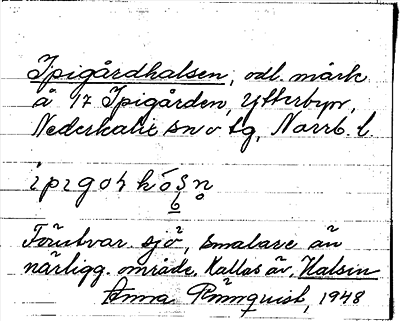 Ipigårdhalsen, odl. märk
å 17 Ipigården, Ytterbyn,
Nederkalix sn o tg, Norrb. l.
ipigoɳ hósn
Förutvar. sjö, smalare än
närligg. område. Kallas äv. Halsin
Anna Rönnquist, 1948